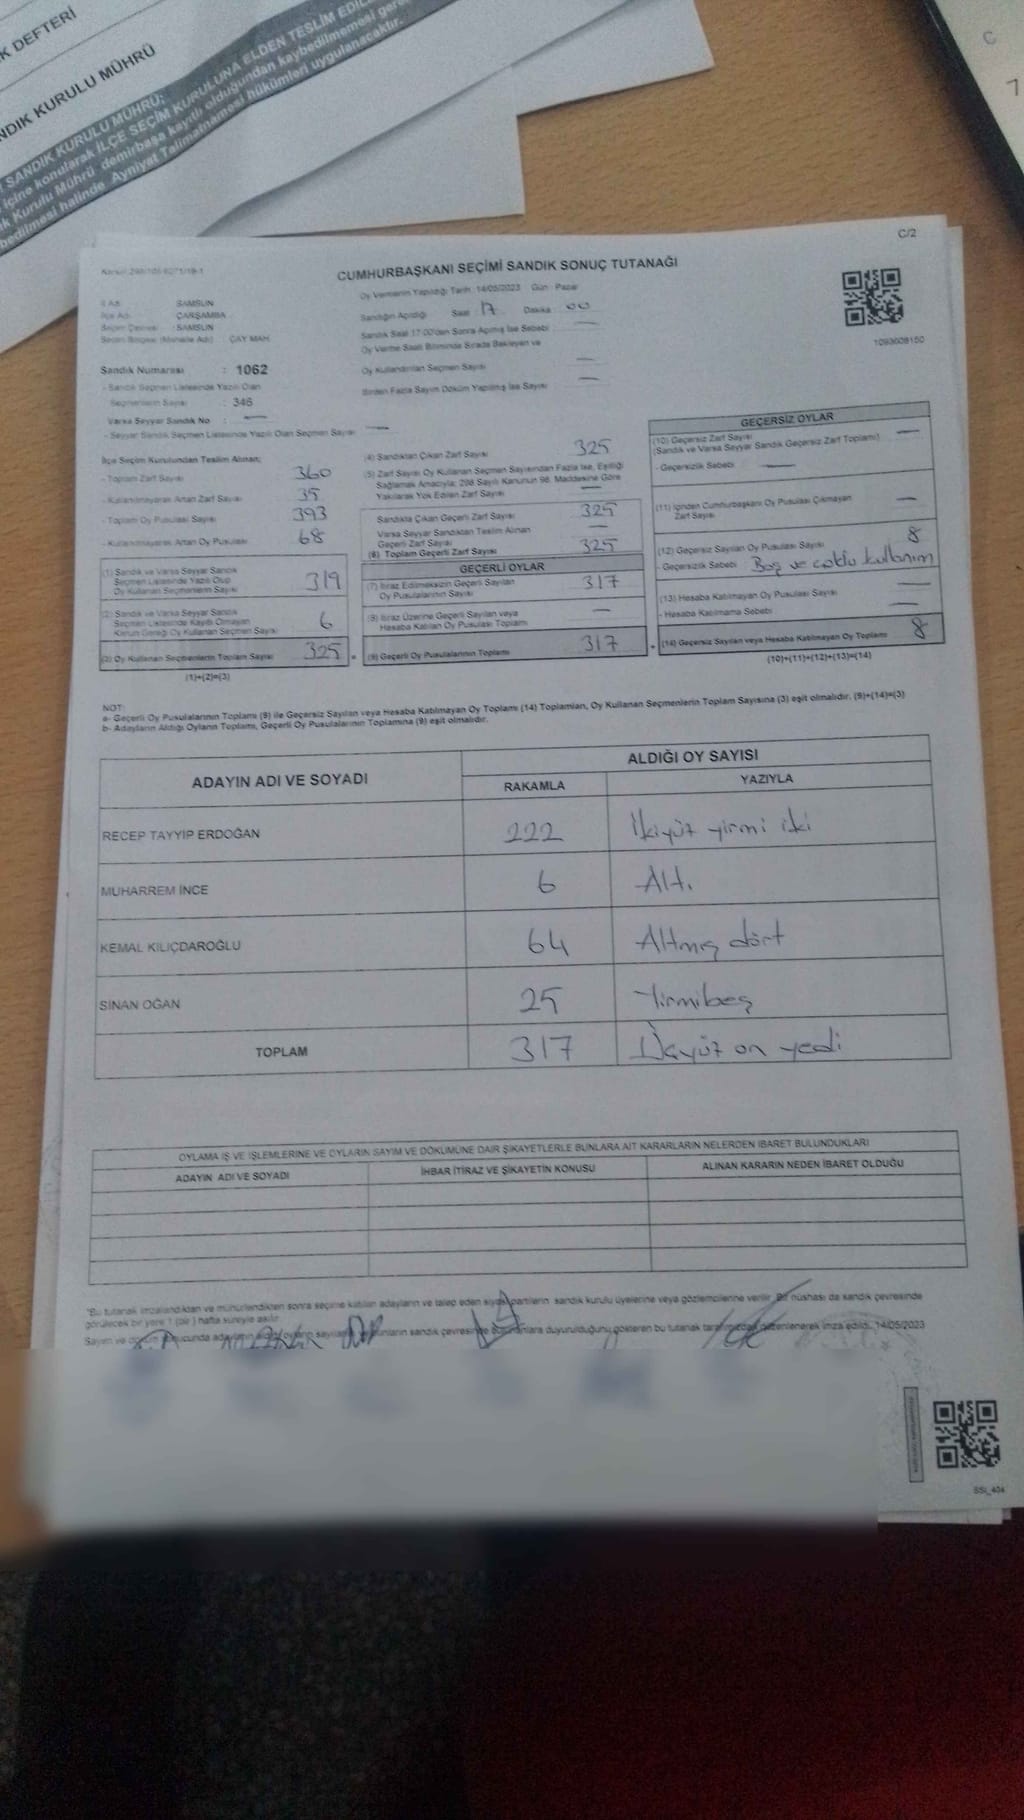 K DEFTERİ
NDIK KURULU MÜHRÜ
SANDIK KURULU MÜHRÜ;
içine konularak İLÇE SEÇİM KURULUNA ELDEN TESLİM
Kurulu Mührü demirbaşa kayıtlı olduğundan kaybedilmemesi
bedilmesi halinde Ayniyat Talimatnamesi hükümleri uygulanacaktır.
C/2
CUMHURBAŞKANI SEÇİMİ SANDIK SONUÇ TUTANAĞI
Oy Vermenin Yapıldığı Tarih : 14/05/2023 Gün : Pazar
İl Adı : SAMSUN
İlçe Adı : ÇARŞAMBA
Seçim Çevresi : SAMSUN
Seçim Bölgesi (Mahalle Adı) : ÇAY MAH.
Sandığın Açıldığı Saat : 17 Dakika : 00
Sandık Saat 17.00'den Sonra Açılmış İse Sebebi : —
Oy Verme Saati Bitiminde Sırada Bekleyen ve
Oy Kullandırılan Seçmen Sayısı : —
Birden Fazla Sayım Döküm Yapılmış İse Sayısı : —
1093608150
Sandık Numarası : 1062
- Sandık Seçmen Listesinde Yazılı Olan
Seçmenlerin Sayısı : 346
Varsa Seyyar Sandık No : —
- Seyyar Sandık Seçmen Listesinde Yazılı Olan Seçmen Sayısı : —
İlçe Seçim Kurulundan Teslim Alınan;
- Toplam Zarf Sayısı : 360
- Kullanılmayarak Artan Zarf Sayısı : 35
- Toplam Oy Pusulası Sayısı : 393
- Kullanılmayarak Artan Oy Pusulası : 68
(1) Sandık ve Varsa Seyyar Sandık
Seçmen Listesinde Yazılı Olup
Oy Kullanan Seçmenlerin Sayısı 319
(2) Sandık ve Varsa Seyyar Sandık
Seçmen Listesinde Kayıtlı Olmayan
Kanun Gereği Oy Kullanan Seçmen Sayısı 6
(3) Oy Kullanan Seçmenlerin Toplam Sayısı 325
(1)+(2)=(3)
(4) Sandıktan Çıkan Zarf Sayısı 325
(5) Zarf Sayısı Oy Kullanan Seçmen Sayısından Fazla İse, Eşitliği
Sağlamak Amacıyla; 298 Sayılı Kanunun 98. Maddesine Göre
Yakılarak Yok Edilen Zarf Sayısı —
Sandıkta Çıkan Geçerli Zarf Sayısı 325
Varsa Seyyar Sandıktan Teslim Alınan
Geçerli Zarf Sayısı —
(6) Toplam Geçerli Zarf Sayısı 325
GEÇERLİ OYLAR
(7) İtiraz Edilmeksizin Geçerli Sayılan
Oy Pusulalarının Sayısı 317
(8) İtiraz Üzerine Geçerli Sayılan veya
Hesaba Katılan Oy Pusulası Toplamı —
(9) Geçerli Oy Pusulalarının Toplamı 317
GEÇERSİZ OYLAR
(10) Geçersiz Zarf Sayısı
(Sandık ve Varsa Seyyar Sandık Geçersiz Zarf Toplamı) —
- Geçersizlik Sebebi —
(11) İçinden Cumhurbaşkanı Oy Pusulası Çıkmayan
Zarf Sayısı —
(12) Geçersiz Sayılan Oy Pusulası Sayısı 8
- Geçersizlik Sebebi Boş ve çoklu kullanım
(13) Hesaba Katılmayan Oy Pusulası Sayısı —
- Hesaba Katılmama Sebebi —
(14) Geçersiz Sayılan veya Hesaba Katılmayan Oy Toplamı 8
(10)+(11)+(12)+(13)=(14)
NOT:
a- Geçerli Oy Pusulalarının Toplamı (9) ile Geçersiz Sayılan veya Hesaba Katılmayan Oy Toplamı (14) Toplamları, Oy Kullanan Seçmenlerin Toplam Sayısına (3) eşit olmalıdır. (9)+(14)=(3)
b- Adayların Aldığı Oyların Toplamı, Geçerli Oy Pusulalarının Toplamına (9) eşit olmalıdır.
ADAYIN ADI VE SOYADI
ALDIĞI OY SAYISI
RAKAMLA YAZIYLA
RECEP TAYYİP ERDOĞAN 222 İkiyüz yirmi iki
MUHARREM İNCE 6 Altı
KEMAL KILIÇDAROĞLU 64 Altmış dört
SİNAN OĞAN 25 Yirmibeş
TOPLAM 317 Üçyüz on yedi
OYLAMA İŞ VE İŞLEMLERİNE VE OYLARIN SAYIM VE DÖKÜMÜNE DAİR ŞİKAYETLERLE BUNLARA AİT KARARLARIN NELERDEN İBARET BULUNDUKLARI
ADAYIN ADI VE SOYADI İHBAR İTİRAZ VE ŞİKAYETİN KONUSU ALINAN KARARIN NEDEN İBARET OLDUĞU
*Bu tutanak imzalandıktan ve mühürlendikten sonra seçime katılan adayların ve talep eden siyasi partilerin sandık kurulu üyelerine veya gözlemcilerine verilir. Bir nüshası da sandık çevresinde
görülecek bir yere 1 (bir) hafta süreyle asılır.
Sayım ve sonucunda adayların oyların bunların sandık çevresinde duyurulduğunu gösteren bu tutanak düzenlenerek imza edildi. 14/05/2023
SSi_404